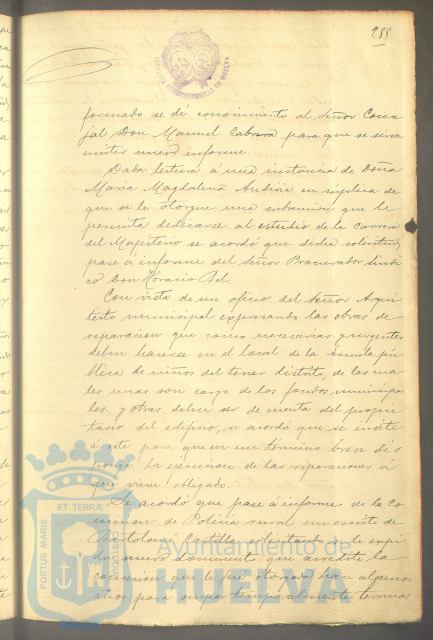 288
ALCALDIA CONSTITUCIONAL DE HUELVA
formado se dé conocimiento al Señor Conce
jal Don Manuel Cabrera para que se sirva
emitir nuevo informe.
Dada lectura á una instancia de Doña
Maria Magdalena en suplica de
que se le otorgue una subvencion que le
permita dedicarse al estudio de la carrera
del Magisterio se acordó que dicha solicitud
pase á informe del Señor Procurador Sindi
co Don Horacio Bel.
Con vista de un oficio del Señor Arqui
tecto municipal expresando las obras de
reparacion que como necesarias y urgentes
deben hacerse en el local de la Escuela pú
blica de niños del tercer distrito, de las cua
les unas son cargo de los fondos municipa
les y otras deben ser de cuenta del propie
tario del edificio, se acordó que se invite
á este para que en un término breve dis
ponga la ejecucion de las reparaciones á
que viene obligado.
Se acordó que pase á informe de la Co
mision de Policia rural un escrito de
Bartolomé Castilla solicitando se le expi
da nuevo documento que acredite la
concesion que le fue otorgada hace algunos
años para ocupar temporalmente terrenos
PORTUS MARIS ET TERRÆ CUSTODIA
Ayuntamiento de
HUELVA